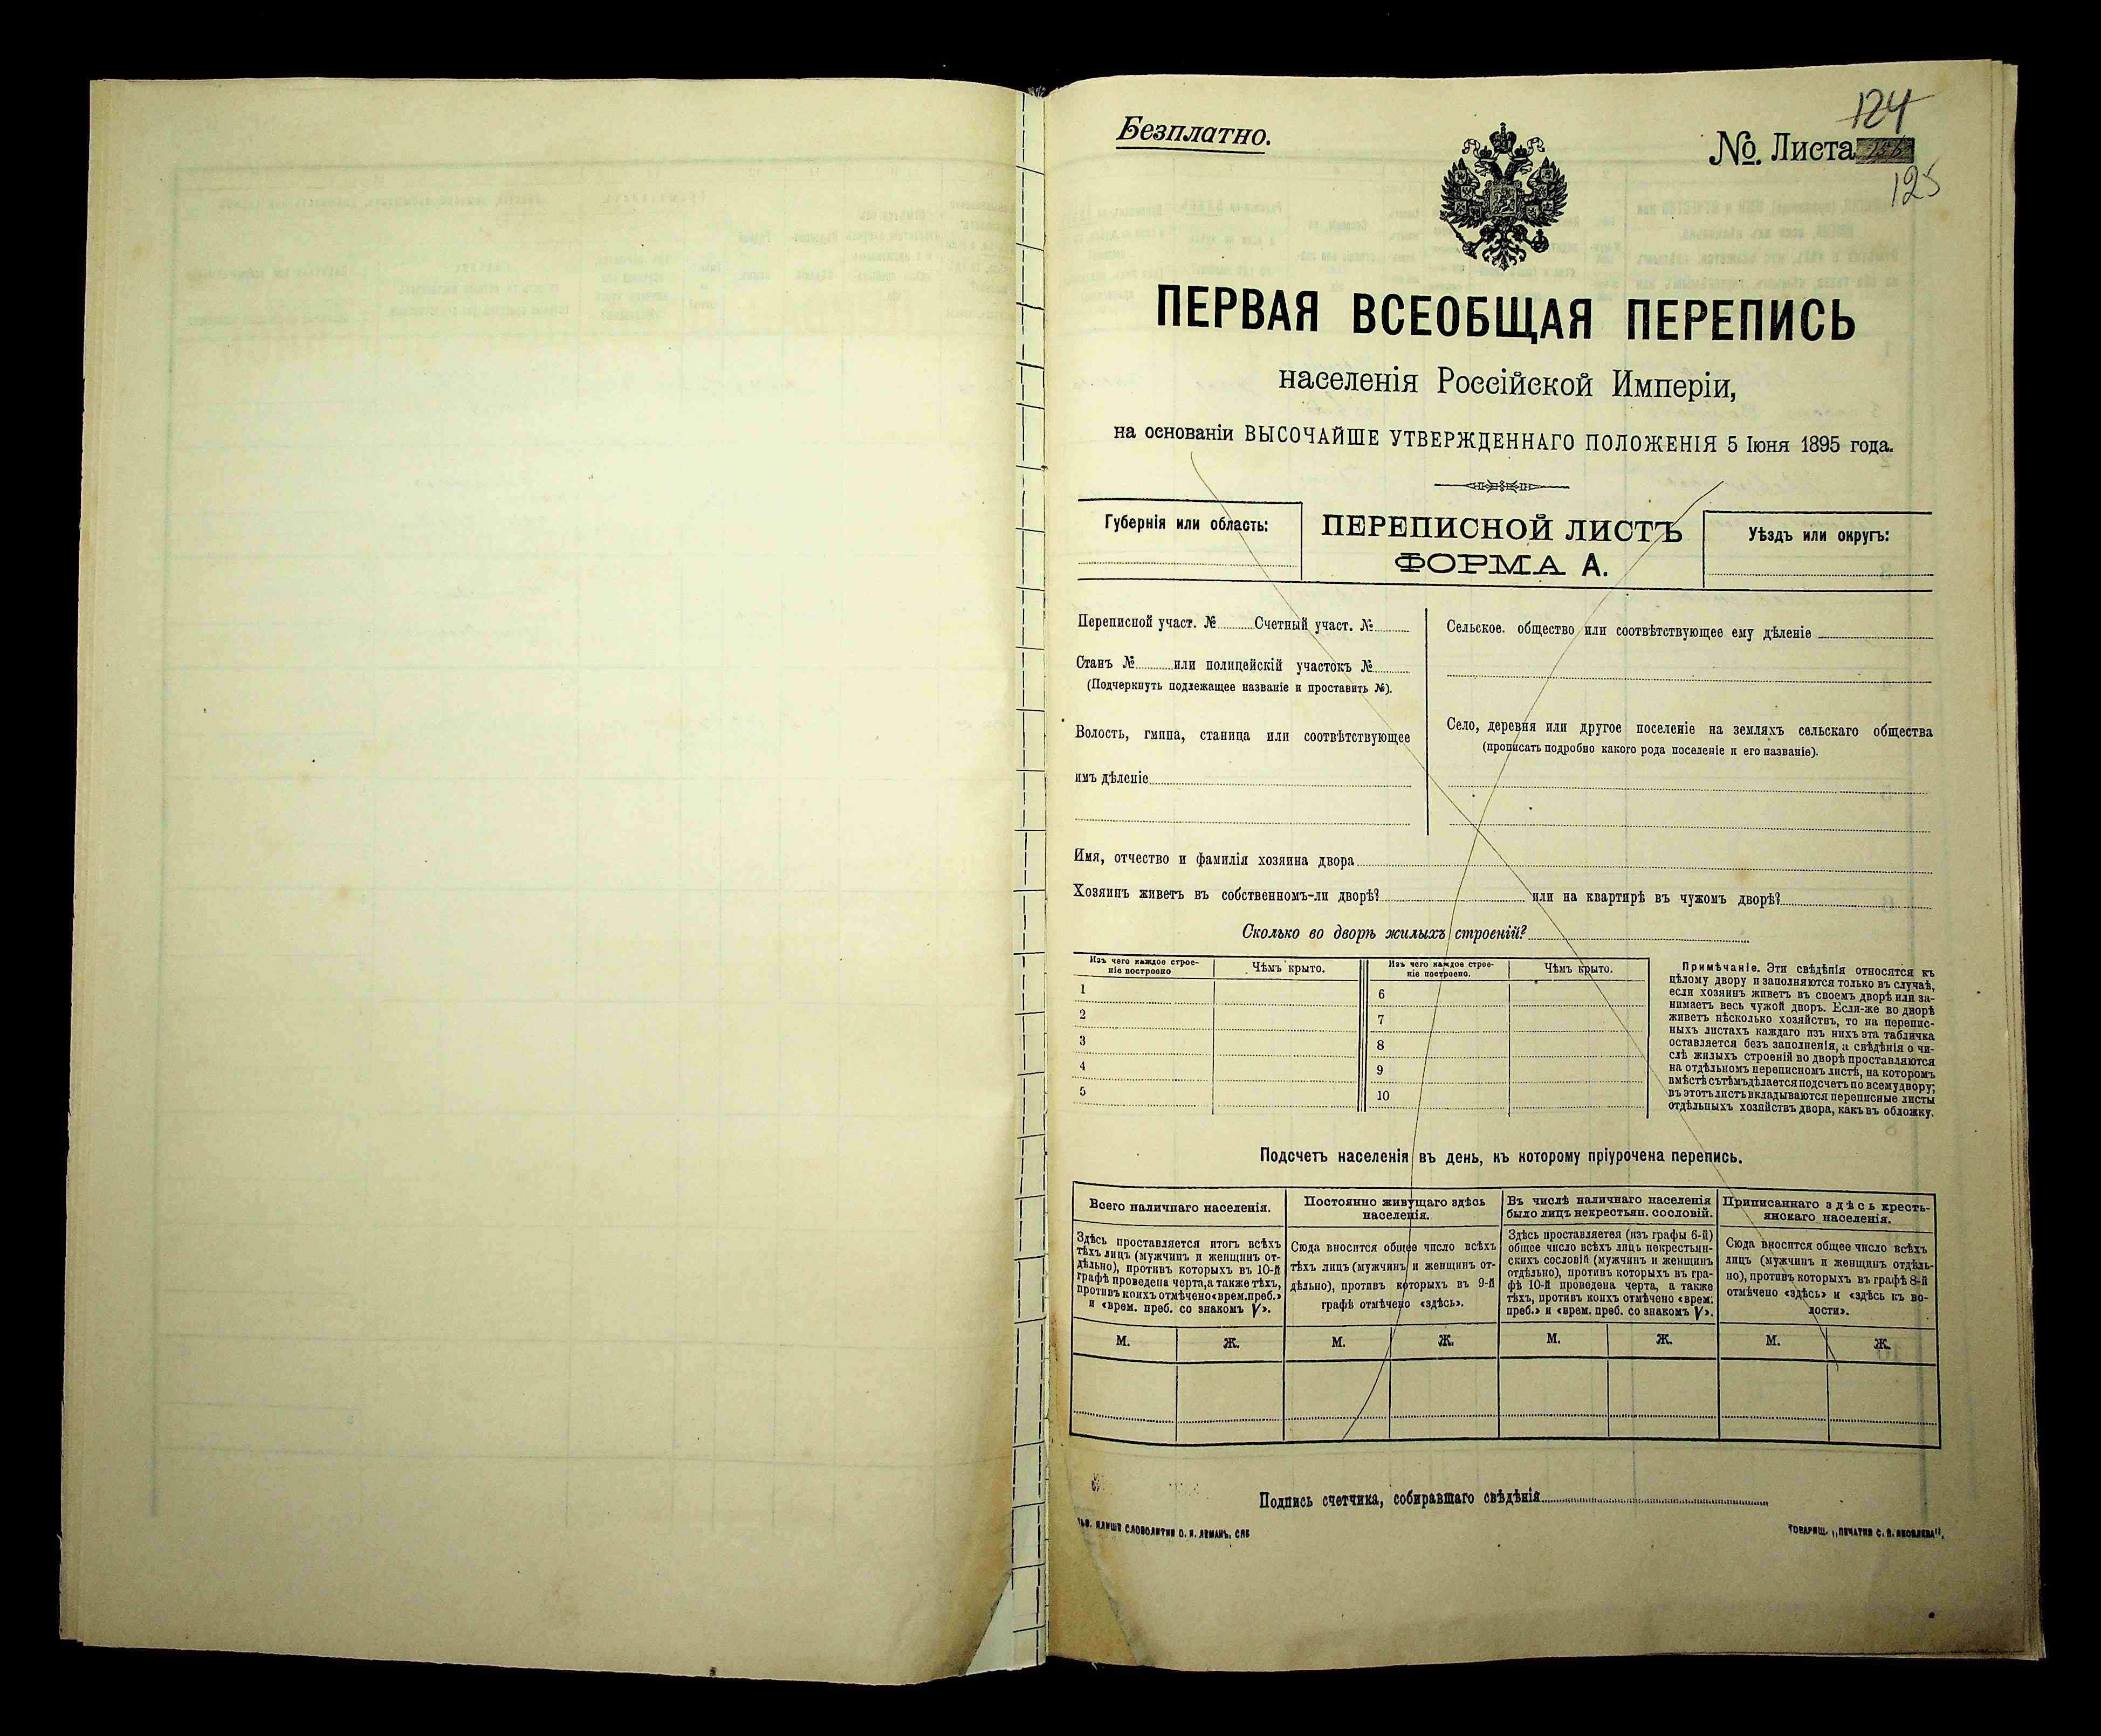 Безплатно.
124
№. Листа
125
ПЕРВАЯ ВСЕОБЩАЯ ПЕРЕПИСЬ
населенія Россійской Имперіи,
на основаніи ВЫСОЧАЙШЕ УТВЕРЖДЕННАГО ПОЛОЖЕНІЯ 5 Іюня 1895 года.
Губернія или область:
ПЕРЕПИСНОЙ ЛИСТЪ
ФОРМА А.
Уѣздъ или округъ:
Переписной участ. № Счетный участ. №
Станъ № или полицейскій участокъ №
(Подчеркнуть подлежащее названіе и проставить №).
Волость, гмина, станица или соотвѣтствующее
имъ дѣленіе
Сельское. общество или соотвѣтствующее ему дѣленіе
Село, деревня или другое поселеніе на земляхъ сельскаго общества
(прописать подробно какого рода поселеніе и его названіе).
Имя, отчество и фамилія хозяина двора
Хозяинъ живетъ въ собственномъ-ли дворѣ? или на квартирѣ въ чужомъ дворѣ?
Сколько во дворѣ жилыхъ строеній?
Изъ чего каждое строе-
ніе построено
Чѣмъ крыто.
1
2
3
4
5
Изъ чего каждое строе-
ніе построено.
Чѣмъ крыто.
6
7
8
9
10
Примѣчаніе. Эти свѣдѣнія относятся къ
цѣлому двору и заполняются только въ случаѣ,
если хозяинъ живетъ въ своемъ дворѣ или за-
нимаетъ весь чужой дворъ. Если-же во дворѣ
живетъ нѣсколько хозяйствъ, то на перепис-
ныхъ листахъ каждаго изъ нихъ эта табличка
оставляется безъ заполненія, а свѣдѣнія о чи-
слѣ жилыхъ строеній во дворѣ проставляются
на отдѣльномъ переписномъ листѣ, на которомъ
вмѣстѣ съ тѣмъ дѣлается подсчетъ по всему двору;
въ этотъ листъ вкладываются переписные листы
отдѣльныхъ хозяйствъ двора, какъ въ обложку.
Подсчетъ населенія въ день, къ которому пріурочена перепись.
Всего наличнаго населенія.
Здѣсь проставляется итогъ всѣхъ
тѣхъ лицъ (мужчинъ и женщинъ от-
дѣльно), противъ которыхъ въ 10-й
графѣ проведена черта, а также тѣхъ,
противъ коихъ отмѣчено «врем. преб.»
и «врем. преб. со знакомъ V».
М. Ж.
Постоянно живущаго здѣсь
населенія.
Сюда вносится общее число всѣхъ
тѣхъ лицъ (мужчинъ и женщинъ от-
дѣльно), противъ которыхъ въ 9-й
графѣ отмѣчено «здѣсь».
М. Ж.
Въ числѣ наличнаго населенія
было лицъ некрестьян. сословій.
Здѣсь проставляется (изъ графы 6-й)
общее число всѣхъ лицъ некрестьян-
скихъ сословій (мужчинъ и женщинъ
отдѣльно), противъ которыхъ въ гра-
фѣ 10-й проведена черта, а также
тѣхъ, противъ коихъ отмѣчено «врем.
преб.» и «врем. преб. со знакомъ V».
М. Ж.
Приписаннаго здѣсь кресть-
янскаго населенія.
Сюда вносится общее число всѣхъ
лицъ (мужчинъ и женщинъ отдѣль-
но), противъ которыхъ въ графѣ 8-й
отмѣчено «здѣсь» и «здѣсь къ во-
лости».
М. Ж.
Подпись счетчика, собиравшаго свѣдѣнія
СЛОВОЛИТНИ О. И. ЛЕМАНЪ, СПБ
ТОВАРИЩ. „ПЕЧАТНЯ С. П. ЯКОВЛЕВА",